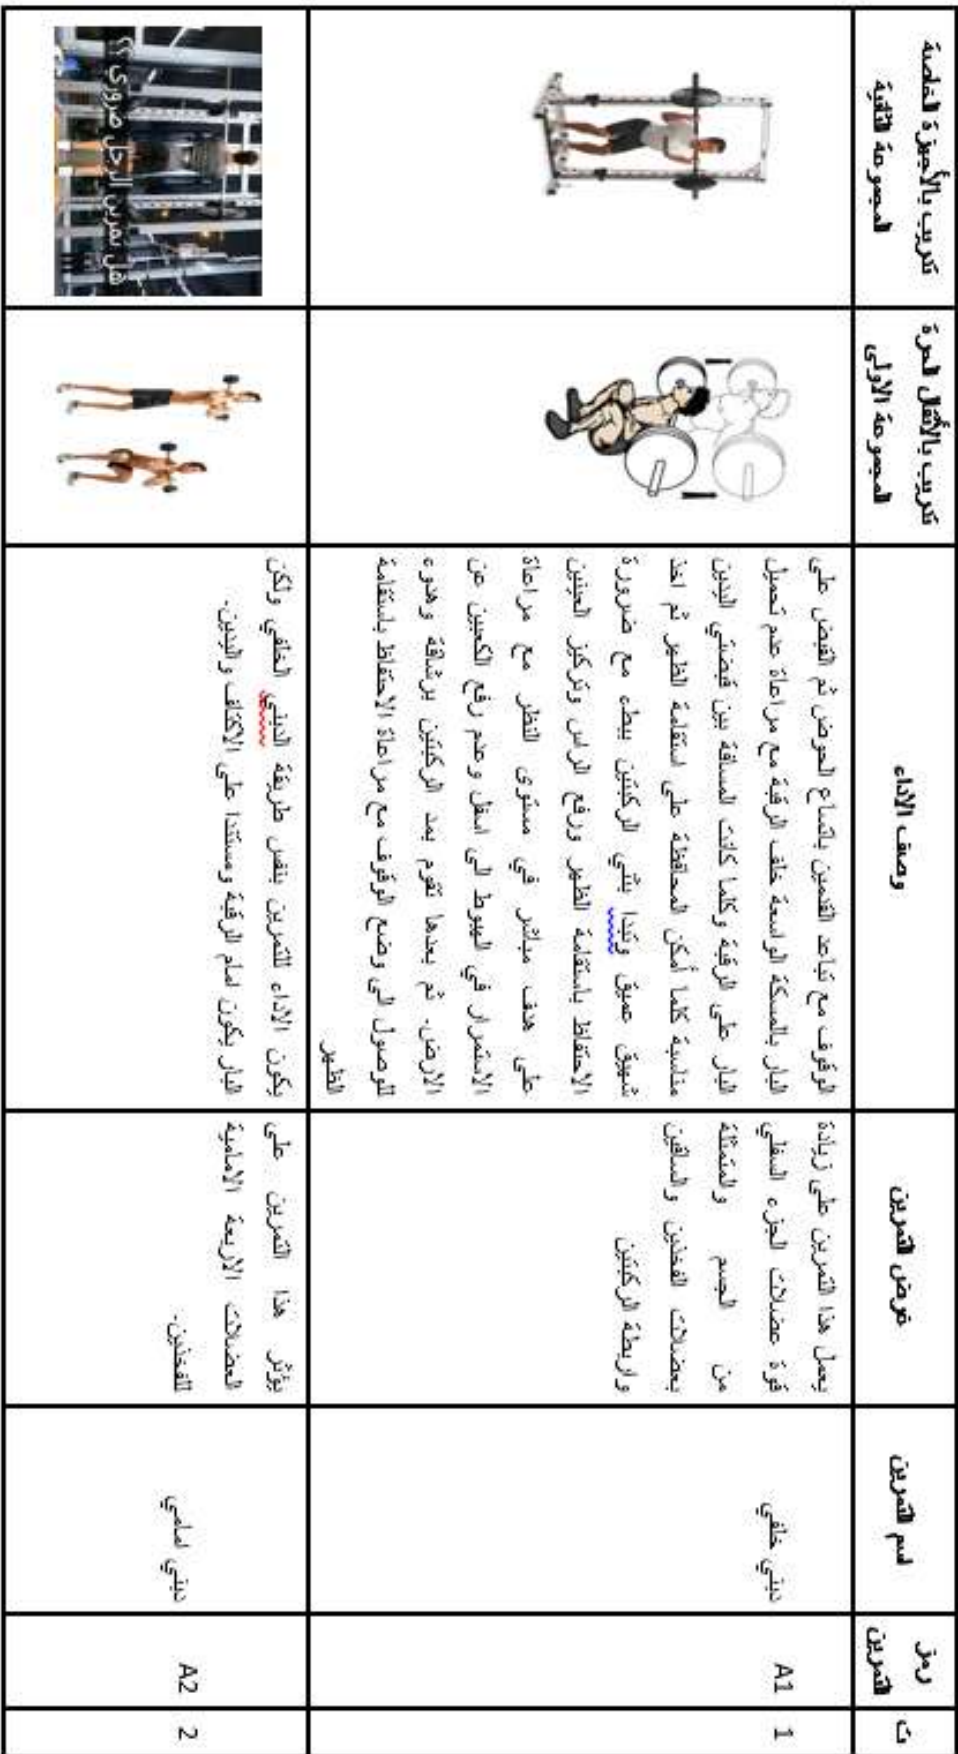 ت
رمز
التمرين
اسم التمرين
غرض التمرين
وصف الاداء
تدريب بالأثقال الحرة
المجموعة الاولى
تدريب بالأجهزة الخاصة
المجموعة الثانية
1
A1
دبني خلفي
يعمل هذا التمرين على زيادة
قوة عضلات الجزء السفلي
من الجسم والمتمثلة
بعضلات الفخذين والساقين
واربطة الركبتين
الوقوف مع تباعد القدمين باتساع الحوض ثم القبض على
البار بالمسكة الواسعة خلف الرقبة مع مراعاة عدم تحميل
البار على الرقبة وكلما كانت المسافة بين قبضتي اليدين
مناسبة كلما أمكن المحافظة على استقامة الظهر ثم اخذ
شهيق عميق وتبدا بثني الركبتين ببطء مع ضرورة
الاحتفاظ باستقامة الظهر ورفع الراس وتركيز العينين
على هدف مباشر في مستوى النظر مع مراعاة
الاستمرار في الهبوط الى اسفل وعدم رفع الكعبين عن
الارض. ثم بعدها تقوم بمد الركبتين برشاقة وهدوء
للوصول الى وضع الوقوف مع مراعاة الاحتفاظ باستقامة
الظهر
2
A2
دبني امامي
يؤثر هذا التمرين على
العضلات الاربعة الامامية
للفخذين.
يكون الاداء للتمرين بنفس طريقة الدبني الخلفي ولكن
البار يكون امام الرقبة ومستندا على الاكتاف واليدين.
هل تمرين الرجل ضروري ؟؟